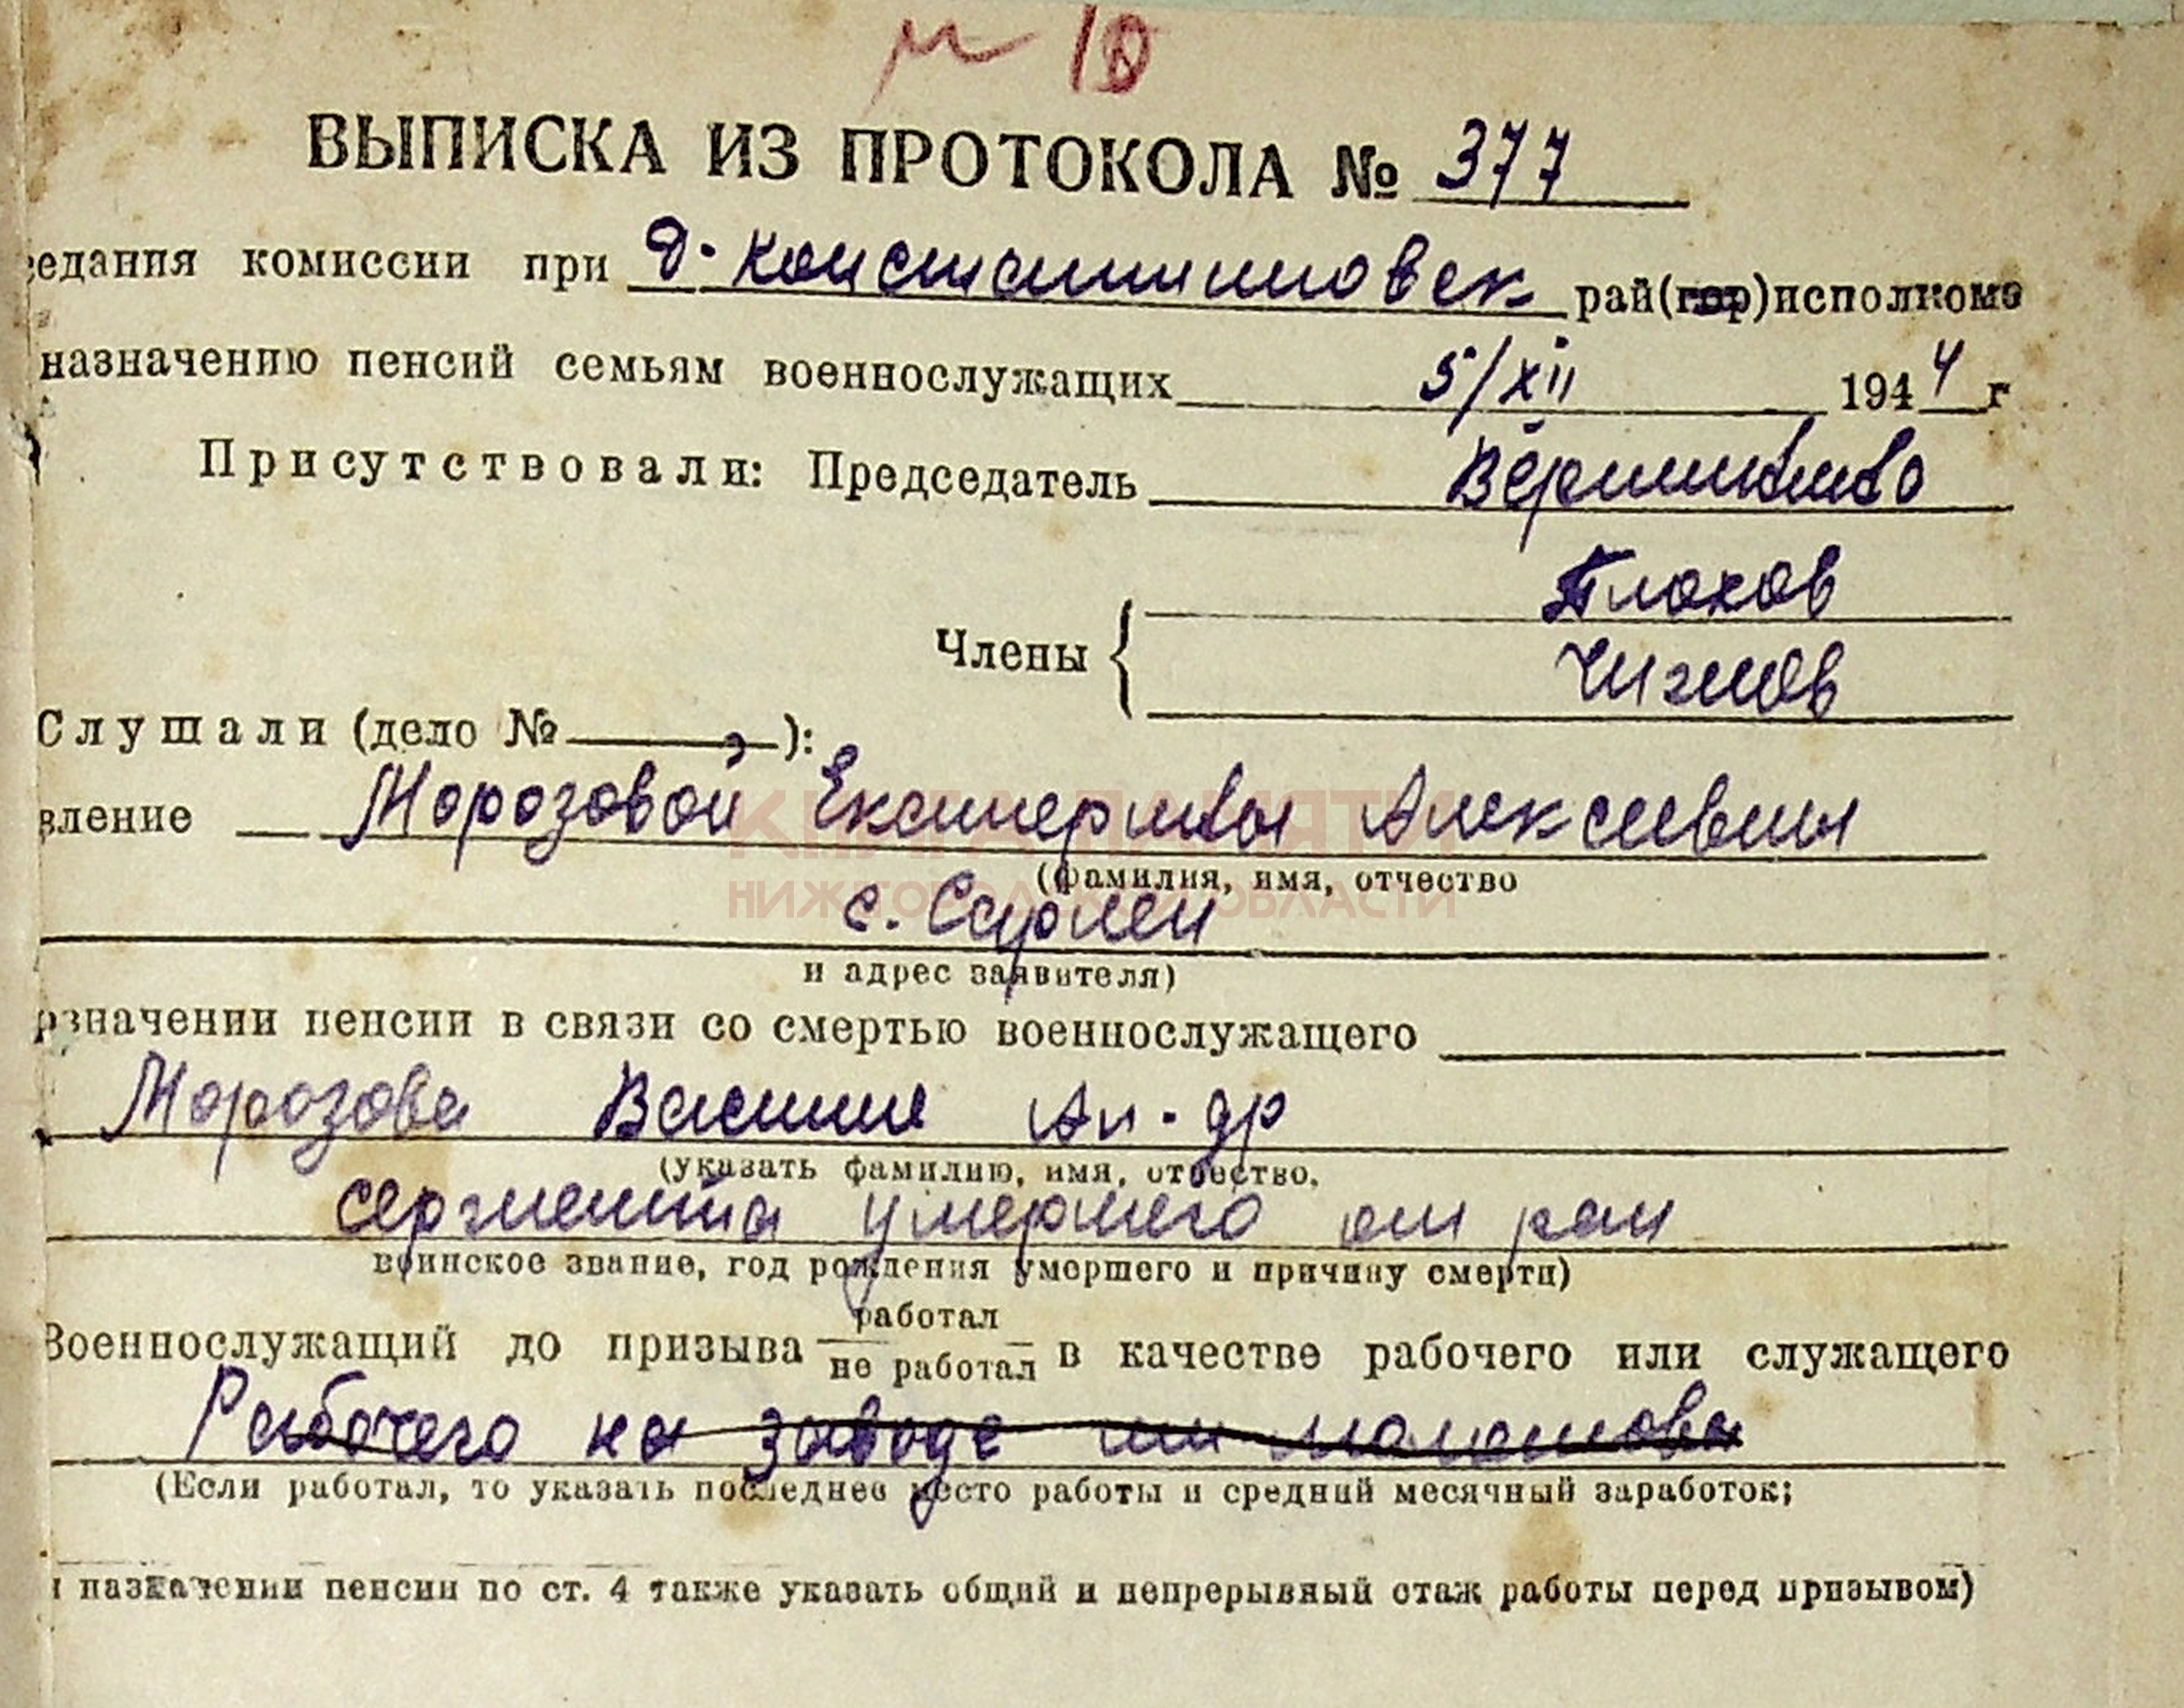 м 10
ВЫПИСКА ИЗ ПРОТОКОЛА № 377
седания комиссии при Д. Константиновск рай(гор)исполкоме
назначению пенсий семьям военнослужащих 5/XII 1944 г
Присутствовали: Председатель
Плохов
Члены
Чижов
Слушали (дело № ):
вление Морозовой Екатерины Алексеевны
(фамилия, имя, отчество
с. Сарлеи
и адрес заявителя)
азначении пенсии в связи со смертью военнослужащего
Морозова Василия Ал-др
(указать фамилию, имя, отчество,
сержанта умершего от ран
воинское звание, год рождения умершего и причину смерти)
работал
Военнослужащий до призыва не работал в качестве рабочего или служащего
Рабочего на заводе им Молотова
(Если работал, то указать последнее место работы и средний месячный заработок;
и назначении пенсии по ст. 4 также указать общий и непрерывный стаж работы перед призывом)
КНИГА ПАМЯТИ
НИЖЕГОРОДСКОЙ ОБЛАСТИ